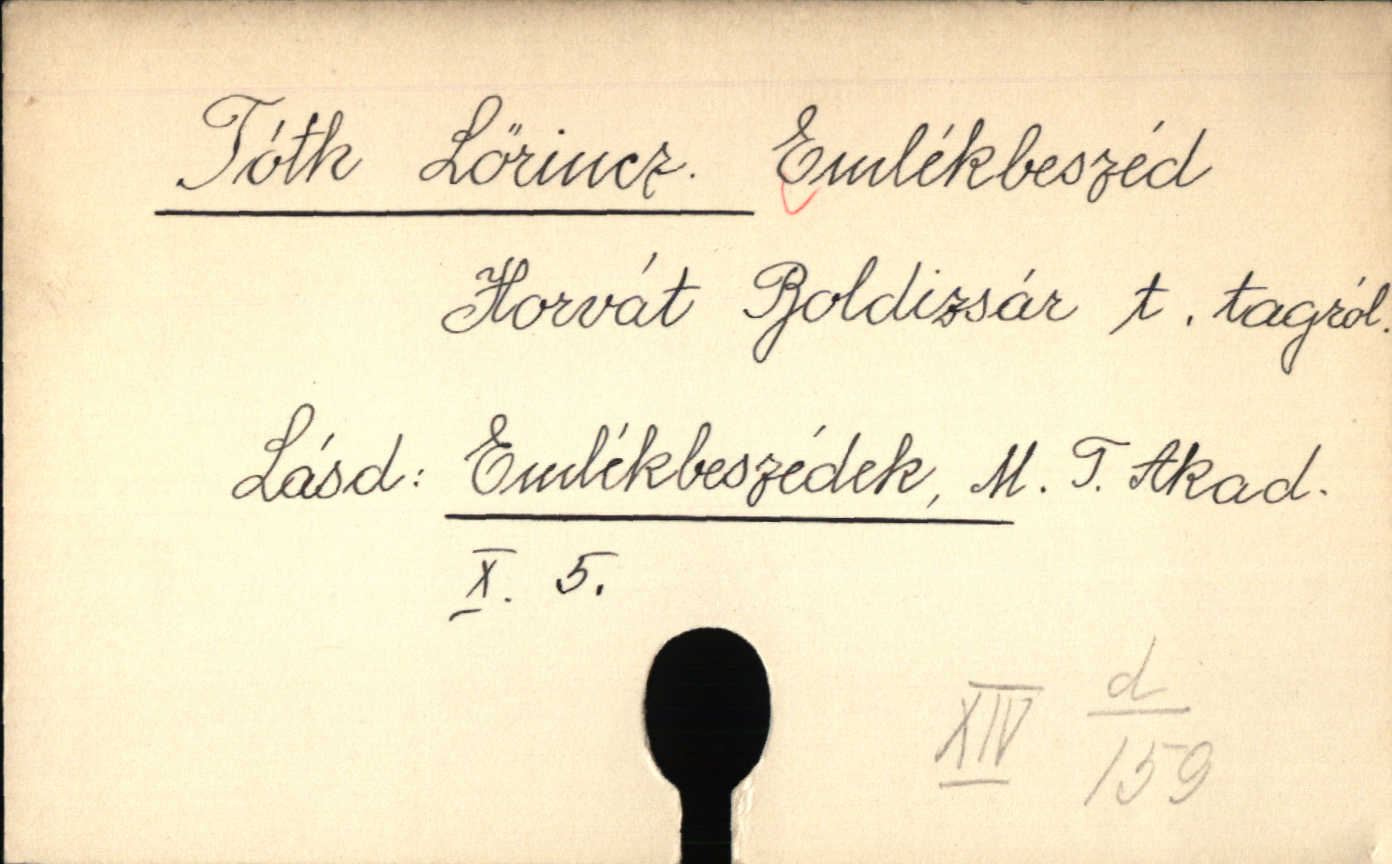 Tóth Lőrincz. Emlékbeszéd
Horvát Boldizsár t. tagról.
Lásd: Emlékbeszédek, M. T. Akad.
X. 5.
XIV d/159